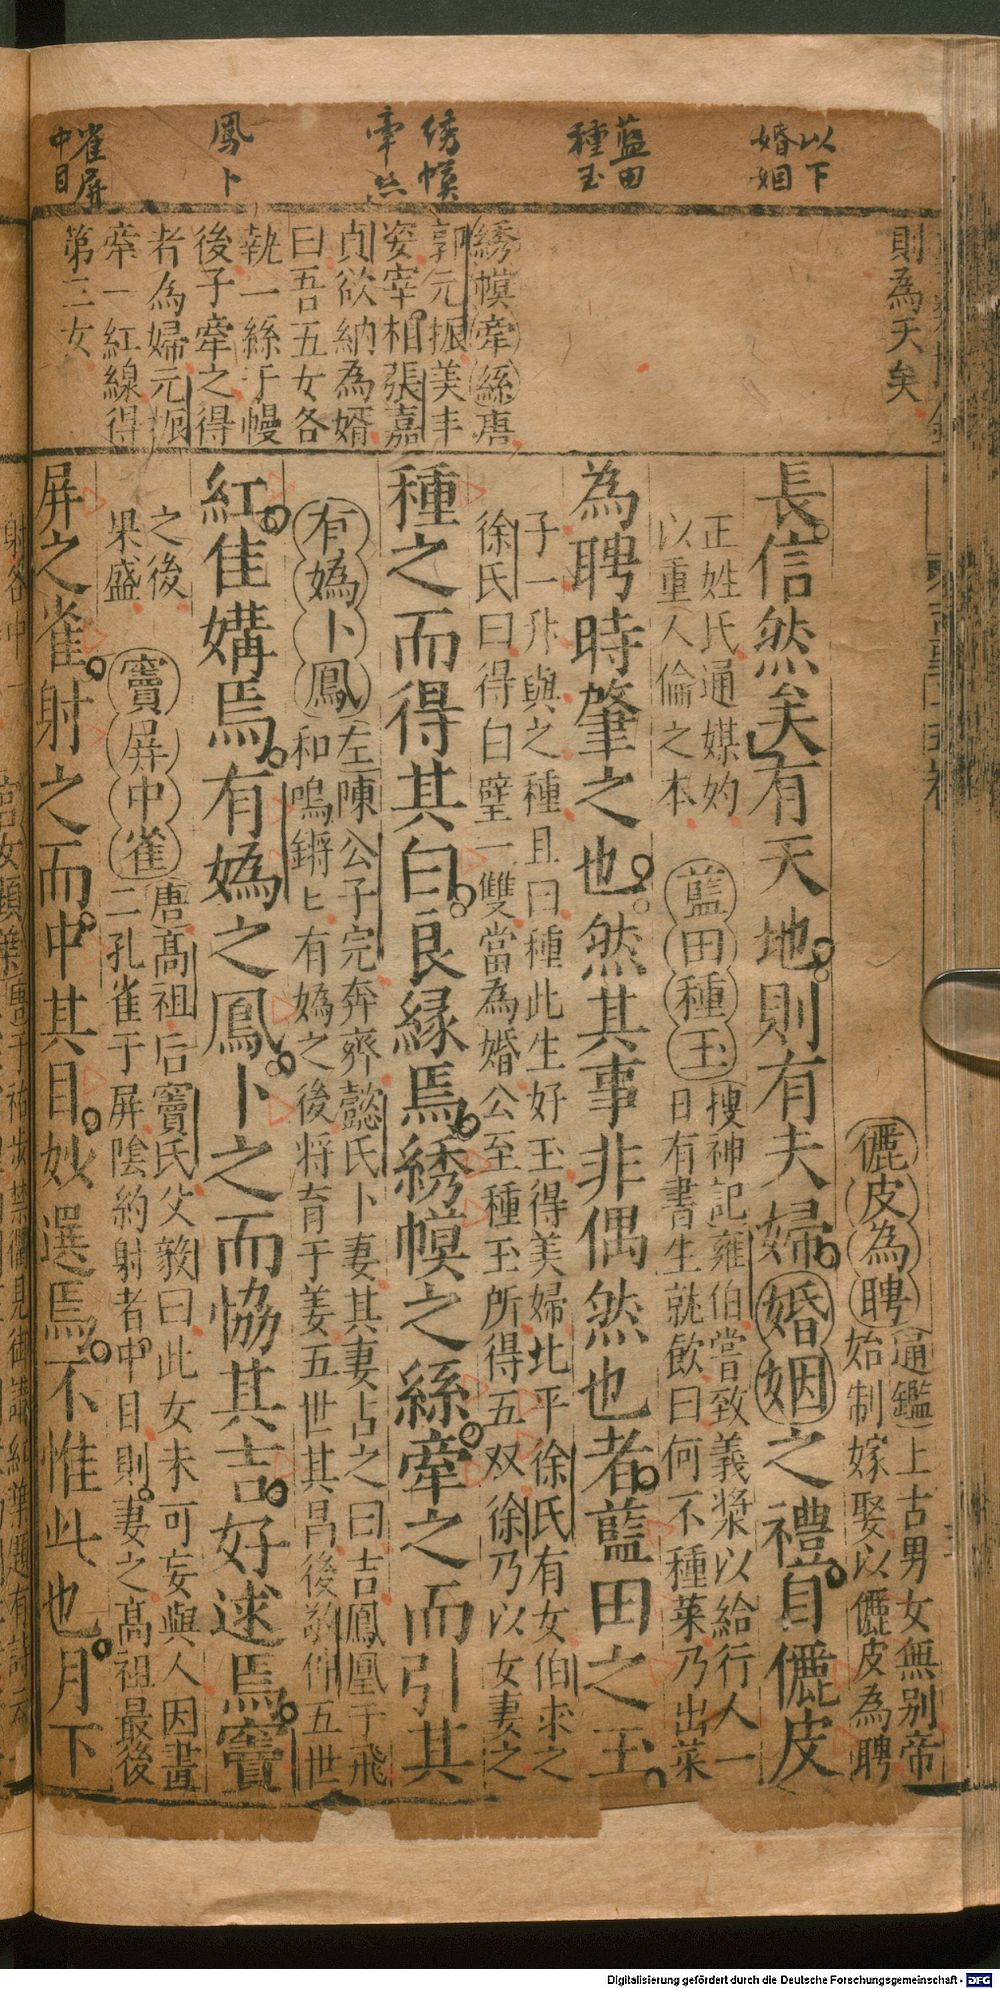 以下
婚姻
藍田
種玉
綉幙
牽絲
鳳卜
雀屏
中目
則為夭矣
綉幙牽絲唐
郭元振美丰
姿宰相張嘉
貞欲納為婿
曰吾五女各
執一絲于幔
後子牽之得
者為婦元振
牽一紅線得
第三女
儷皮為聘
通鑑上古男女無別帝
始制嫁娶以儷皮為聘
長信然矣有天地則有夫婦婚姻之禮自儷皮
正姓氏通媒妁
以重人倫之本
藍田種玉
搜神記雍伯嘗致義漿以給行人一
日有書生就飲曰何不種菜乃出菜
為聘時肇之也然其事非偶然也者藍田之玉
子一升與之種且曰種此生好玉得美婦北平徐氏有女伯求之
徐氏曰得白璧一雙當為婚公至種玉所得五双徐乃以女妻之
種之而得其白良緣焉綉幙之絲牽之而引其
有媯卜鳳
左陳公子完奔齊懿氏卜妻其妻占之曰吉鳳凰于飛
和鳴鏘匕有媯之後將育于姜五世其昌後敬仲五世
紅佳媾焉有媯之鳳卜之而協其吉好逑焉竇
之後
果盛
竇屏中雀
唐高祖后竇氏父毅曰此女未可妄與人因畫
二孔雀于屏陰約射者中目則妻之高祖最後
屏之雀射之而中其目妙選焉不惟此也月下
Digitalisierung gefördert durch die Deutsche Forschungsgemeinschaft - DFG